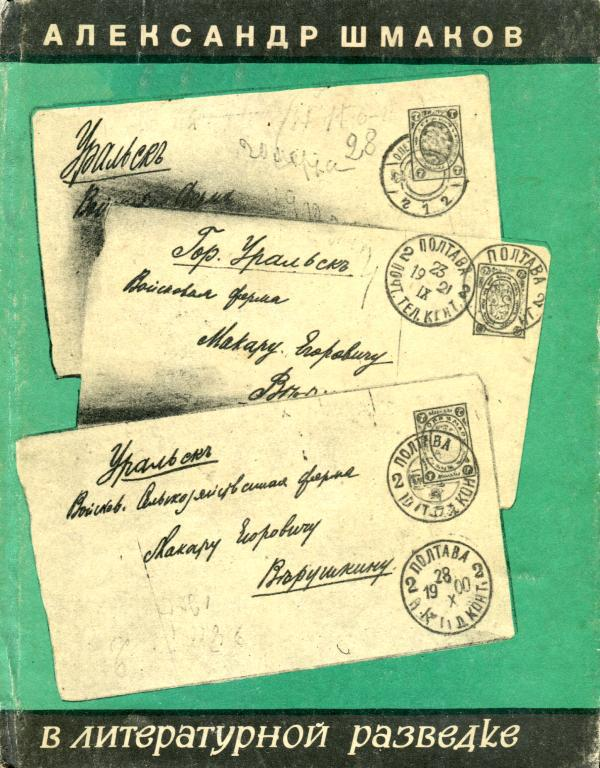 АЛЕКСАНДР ШМАКОВ
Уральскъ
28
212
Гор. Уральскъ
Войсковая ферма
Макару Егоровичу
ПОЛТАВА
23
19 21
IX
ПОЧТ. ТЕЛ. КОНТ. 2
ПОЛТАВА
Уральскъ
Войсков. Сельскохозяйственная ферма
Макару Егоровичу
Вѣрушкину
ПОЛТАВА
2
ПОЛТАВА
28
19 00
X
2 2
КОНТ.
в литературной разведке